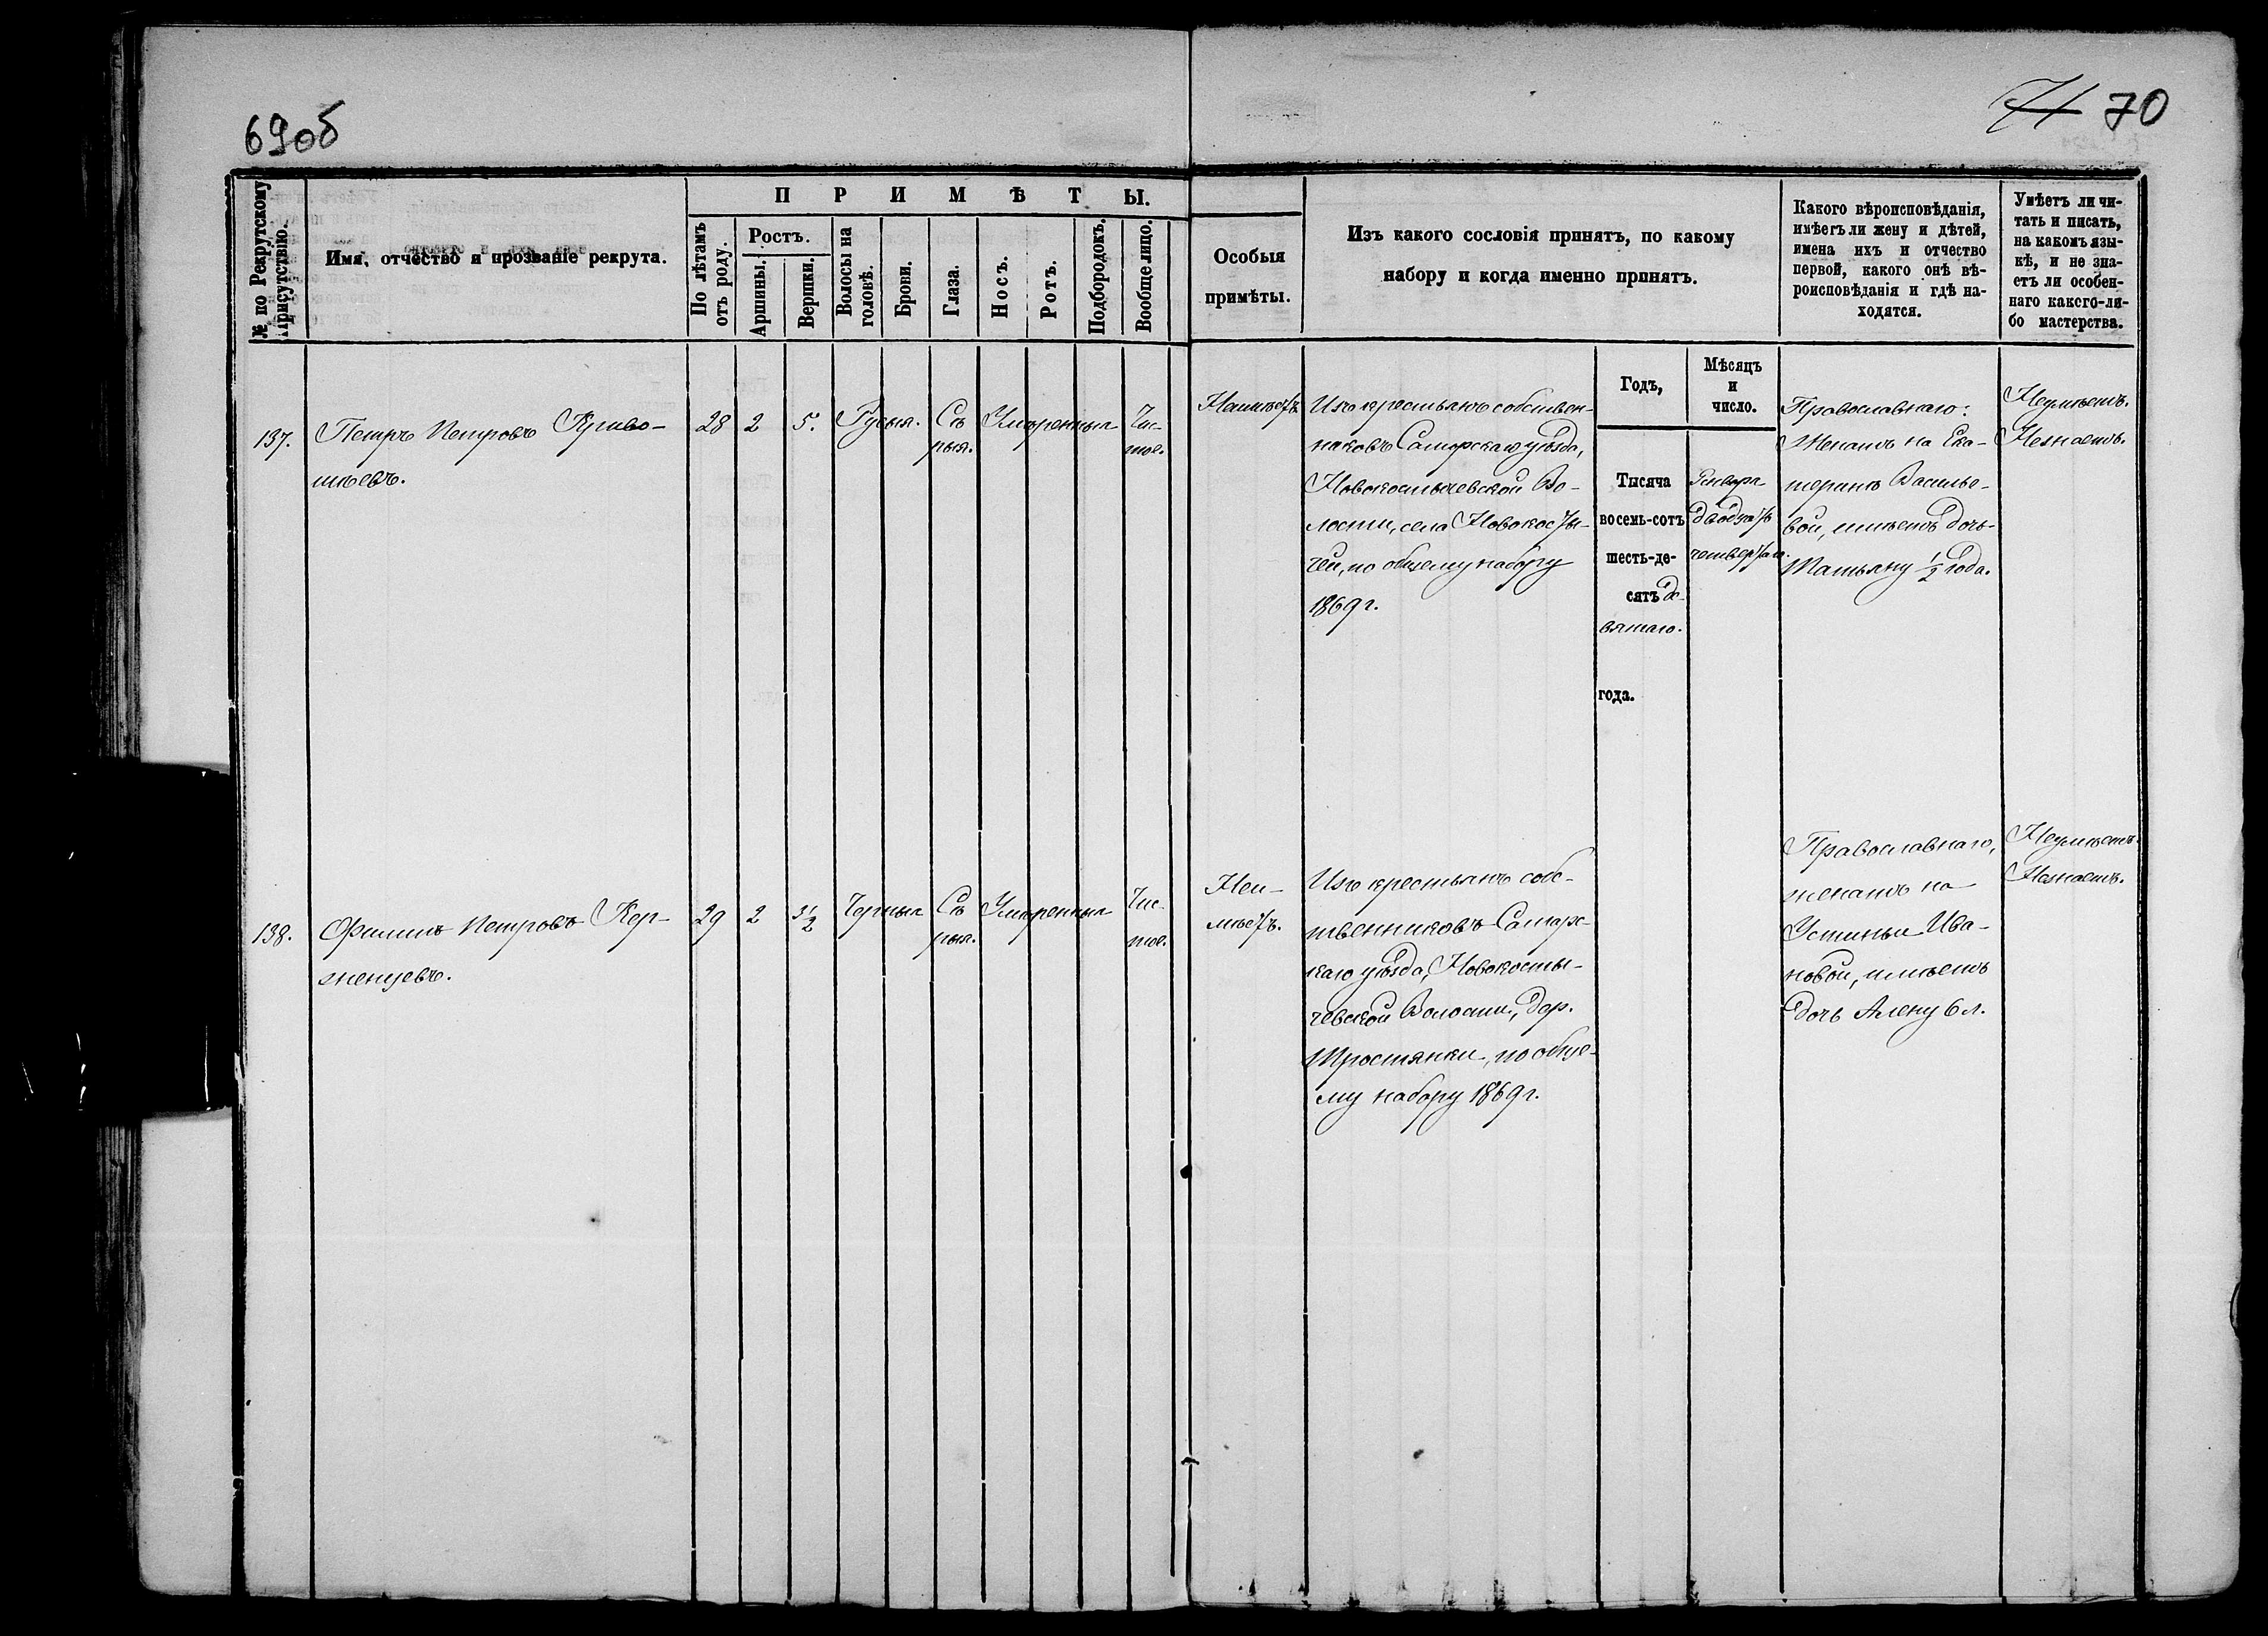 69об
71 70
№ по Рекрутскому Присутствію.
Имя, отчество и прозваніе рекрута.
ПРИМѢТЫ.
По лѣтамъ отъ роду.
Ростъ.
Аршины.
Вершки.
Волосы на головѣ.
Брови.
Глаза.
Носъ.
Ротъ.
Подбородокъ.
Вообще лицо.
Особыя
примѣты.
Изъ какого сословія принятъ, по какому
набору и когда именно принятъ.
Какого вѣроисповѣданія,
имѣетъ ли жену и дѣтей,
имена ихъ и отчество
первой, какого онѣ вѣ-
роисповѣданія и гдѣ на-
ходятся.
Умѣетъ ли чи-
тать и писать,
на какомъ язы-
кѣ, и не зна-
етъ ли особен-
наго какого-ли-
бо мастерства.
137.
Петръ Петровъ Криво-
шеевъ.
28
2
5.
Русыя.
Сѣ
рыя.
Умѣренныя
Чис-
тое.
Неимѣетъ
Изъ крестьянъ собствен-
никовъ Самарскаго уѣзда,
Новокостычевской Во-
лости, села Новокосты-
чей, по общему набору
1869 г.
Годъ,
Тысяча
восемь-сотъ
шесть-де-
сятъ де-
вятаго.
года.
Мѣсяцъ
и
число.
Января
двадцать
четвертаго.
Православнаго:
Женатъ на Ека-
теринѣ Василье-
вой, имѣетъ дочь
Татьяну 1/2 года.
Неумѣетъ.
Незнаетъ.
138.
Филипъ Петровъ Кер-
женцевъ.
29
2
3 1/2
Черныя
Сѣ
рыя.
Умѣренныя
Чис-
тое.
Неи-
мѣетъ.
Изъ крестьянъ собс-
твенниковъ Самарс-
каго уѣзда, Новокосты-
чевской Волости, дер.
Тростянки, по обще-
му набору 1869 г.
Православнаго,
женатъ на
Устиньи Ива-
новой, имѣетъ
дочь Алену 6 л.
Неумѣетъ.
Незнаетъ.